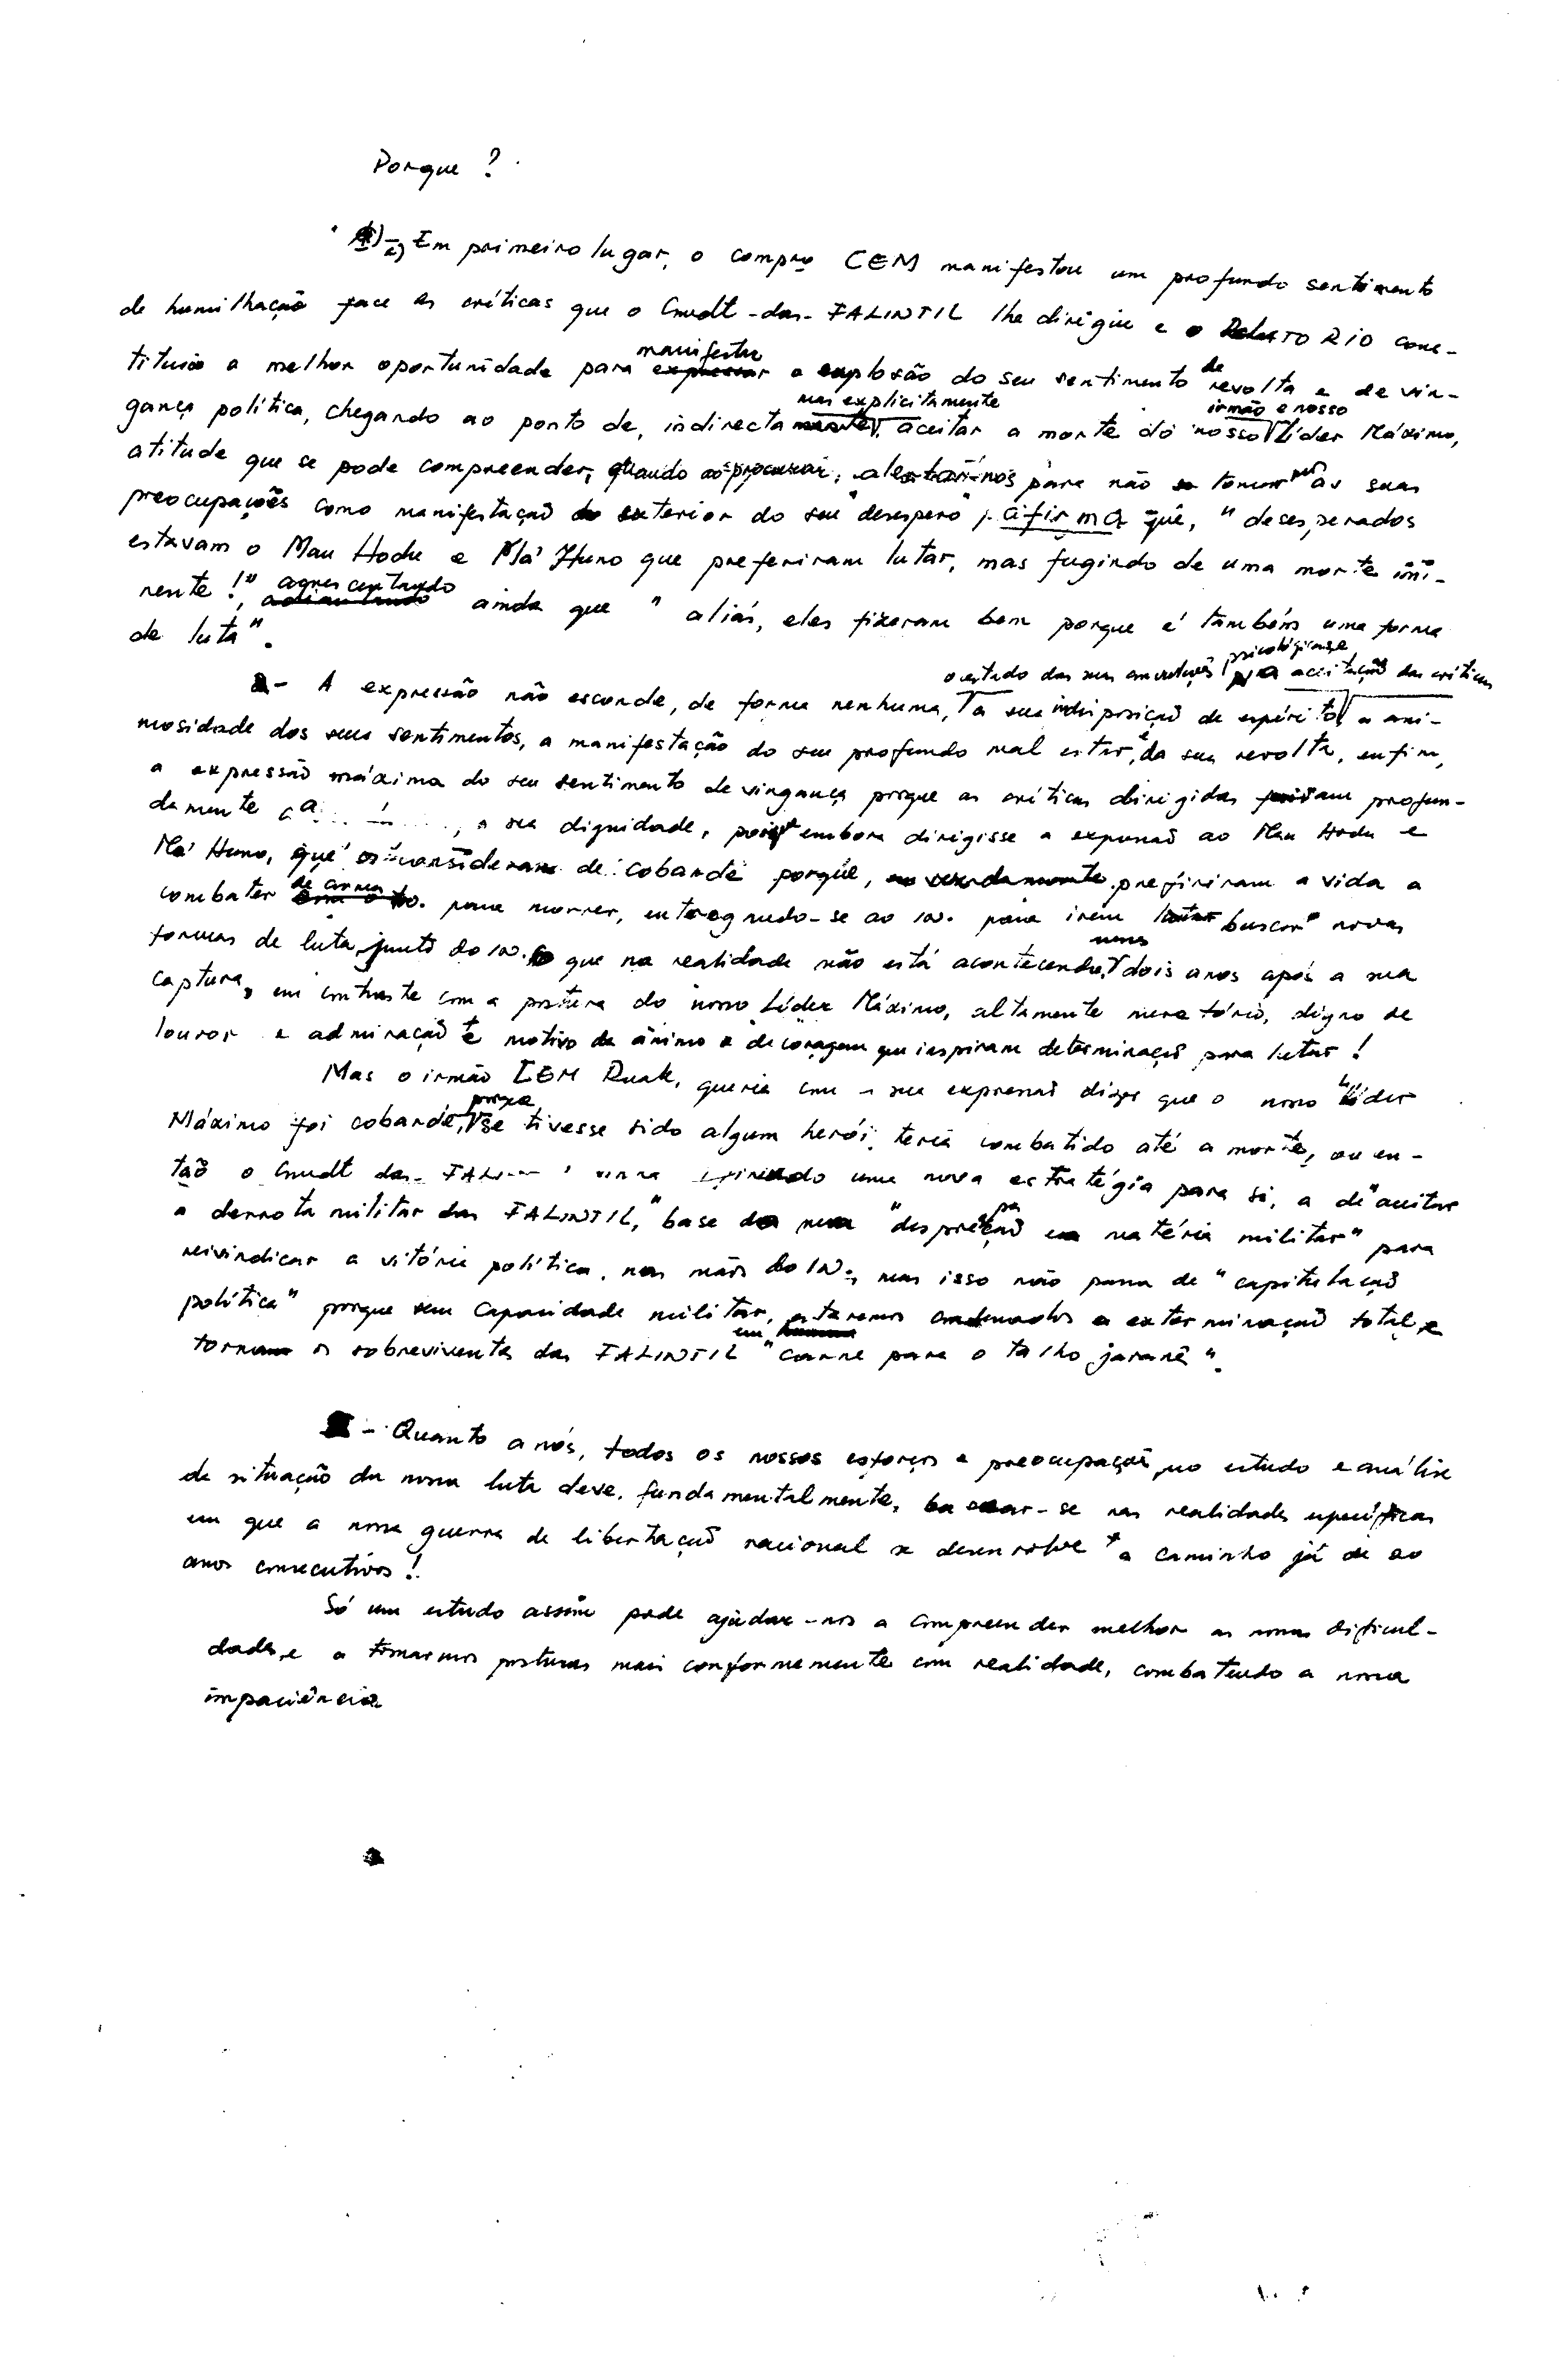 Porque ?
Em primeiro lugar, o compro CEM manifestou um profundo sentimento
de humilhação face às críticas que o Cmdt-das-FALINTIL lhe dirigiu e o RELATORIO cons-
manifestar
tituiu a melhor oportunidade para expressar a explosão do seu sentimento de revolta e de vin-
mas explicitamente irmão e nosso
gança política, chegando ao ponto de, indirecta aceitar a morte do nosso Líder Máximo,
atitude que se pode compreender, quando ao procurar, alertar-nos para não tomar as suas
preocupações como manifestação exterior do seu "desespero", afirma que, "desesperados
estavam o Mau Hodu e Má Huno que preferiram lutar, mas fugindo de uma morte imi-
nente!", acrescentando ainda que "aliás, eles fizeram bem porque é também uma forma
de luta".
o estado das suas psicológicas para aceitação das críticas
- A expressão não esconde, de forma nenhuma, a sua indisposição de espírito, a ani-
mosidade dos seus sentimentos, a manifestação do seu profundo mal estar, da sua revolta, enfim,
a expressão máxima do seu sentimento de vingança porque as críticas dirigidas feriram profun-
damente a sua dignidade, porque embora dirigisse a expressão ao Mau Hodu e
Má Huno, que os consideram de cobarde porque, preferiram a vida a
combater de armas para morrer, entregando-se ao IN. para irem buscar novas
formas de luta junto do IN. que na realidade não está acontecendo, dois anos após a sua
captura, em contraste com a postura do nosso Líder Máximo, altamente meratório, digno de
louvor e admiração e motivo de ânimo e de coragem que inspiram determinação para lutar!
Mas o irmão CEM Ruak, queria com a sua expressão dizer que o nosso Líder
porque
Máximo foi cobarde, se tivesse sido algum herói, teria combatido até a morte, ou en-
tão o Cmdt das uma nova estratégia para si, a de "aceitar
a derrota militar das FALINTIL," base da sua em matéria militar" para
reivindicar a vitória política, nas mãos do IN., mas isso não passa de "capitulação
política" porque sem capacidade militar, estaremos condenados a exterminação total e
tornam os sobreviventes das FALINTIL em "carne para o talho javanês".
- Quanto a nós, todos os nossos esforços e preocupações, no estudo e análise
da situação da nossa luta deve, fundamentalmente, basear-se nas realidades específicas
em que a nossa guerra de libertação nacional se desenvolve a caminho já de 20
anos consecutivos!
Só um estudo assim pode ajudar-nos a compreender melhor as nossas dificul-
dades, e a tomarmos posturas mais conformemente com realidade, combatendo a nossa
impaciência